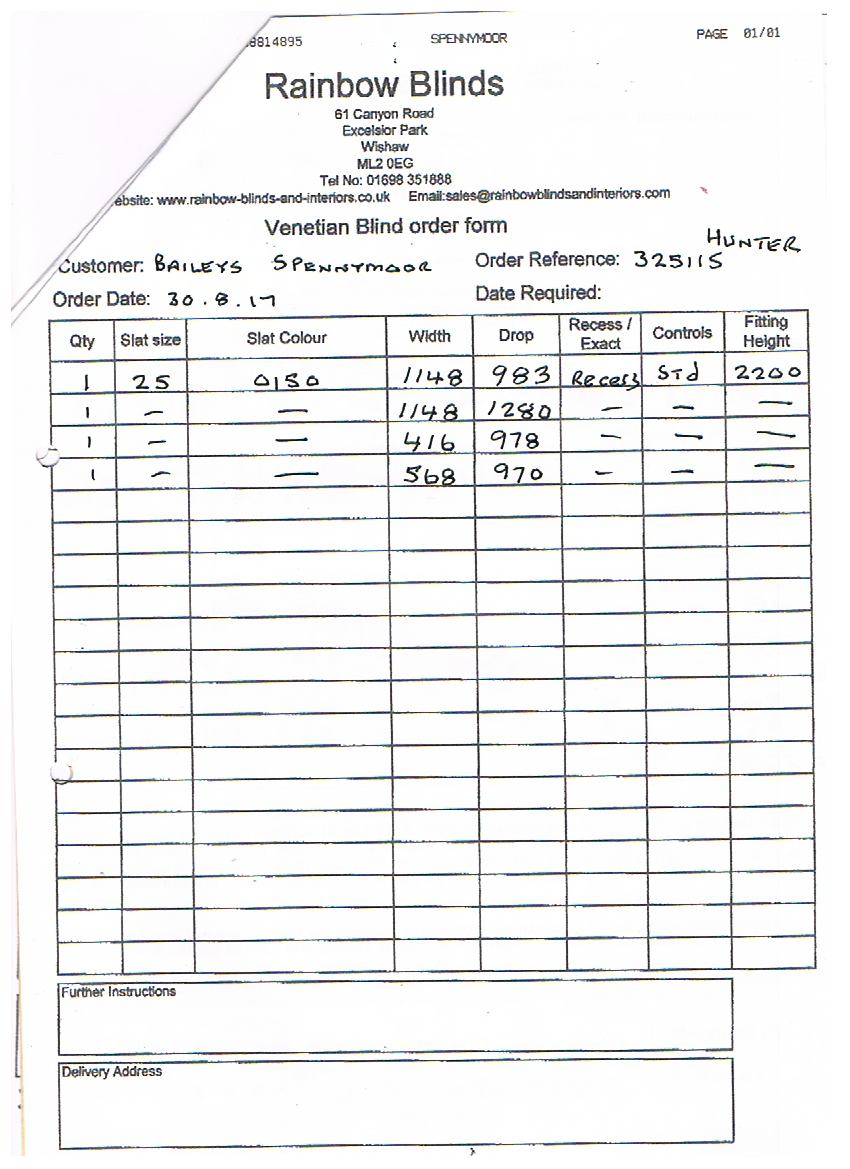 8814895 SPENNYMOOR PAGE 01/01
Rainbow Blinds
61 Canyon Road
Excelsior Park
Wishaw
ML2 0EG
Tel No: 01698 351888
ebsite: www.rainbow-blinds-and-interiors.co.uk Email:sales@rainbowblindsandinteriors.com
Venetian Blind order form
HUNTER
Customer: BAILEYS SPENNYMOOR Order Reference: 325115
Order Date: 30.8.17 Date Required:
Qty Slat size Slat Colour Width Drop Recess / Exact Controls Fitting Height
1 25 0150 1148 983 Recess Std 2200
1 — — 1148 1280 — — —
1 — — 416 978 — — —
1 — — 568 970 — — —
Further Instructions
Delivery Address